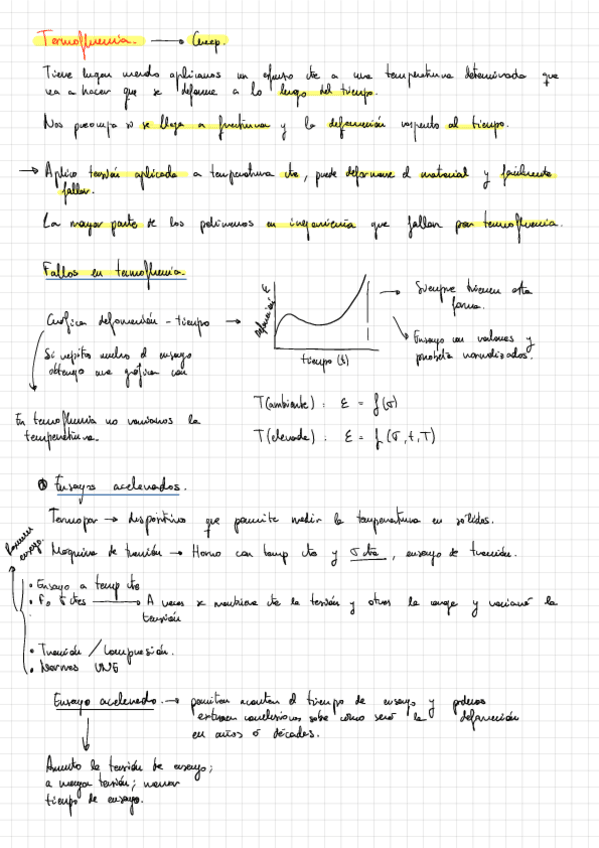 Termofluencia. → Creep.
Tiene lugar cuando aplicamos un esfuerzo cte a una temperatura determinada que
va a hacer que se deforme a lo largo del tiempo.
Nos preocupa si se llega a fractura y la deformación respecto al tiempo.
→ Aplico tensión aplicada a temperatura cte, puede deformarse el material y facilmente
fallar.
La mayor parte de los polimeros en ingenieria que fallan por termofluencia.
Fallos en termofluencia.
Grafica deformación - tiempo →
deformación ε
tiempo (t)
→ Siempre tienen esta
forma.
Ensayo con valores y
probeta normalizados.
Si repito mucho el ensayo
obtengo una gráfica con
En termofluencia no variamos la
temperatura.
T(ambiente): ε = f(σ)
T(elevada): ε = f(σ, t, T)
Ensayos acelerados.
Termopar → dispositivo que permite medir la temperatura en sólidos.
Maquina de tracción → Horno con temp cte y σ cte, ensayo de tracción.
ensayo.
• Ensayo a temp cte
• F o σ ctes → A veces se mantiene cte la tensión y otras la carga y variará la
tensión
• Tracción / Compresión.
• Normas UNE
Ensayo acelerado → permiten acortar el tiempo de ensayo y podemos
extraer conclusiones sobre cómo será la deformación
en años o décadas.
Aumento la tensión de ensayo;
a mayor tensión; menor
tiempo de ensayo.